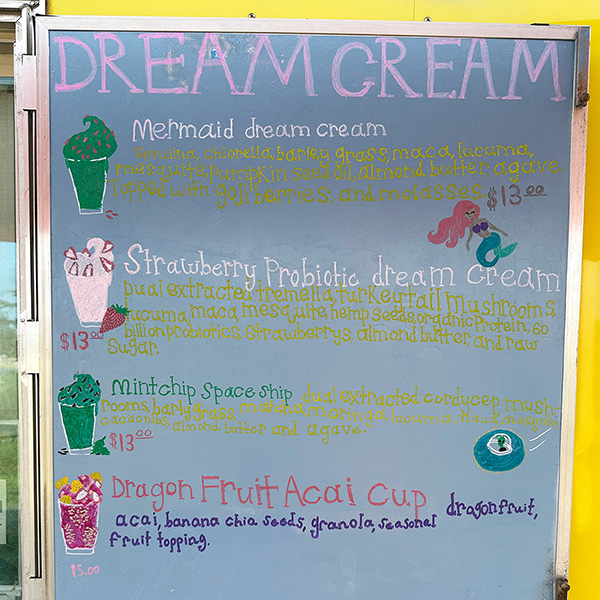 DREAM CREAM
Mermaid dream cream
Spirulina, chlorella, barley grass, maca, lucuma,
mesquite, pumpkin seed oil, almond butter, agave
Topped with goji berries, and molasses. $13.00
Strawberry Probiotic dream cream
Dual extracted tremella, turkey tail mushrooms,
lucuma, maca, mesquite, hemp seeds, organic protein, 60
billion probiotics, strawberrys, almond butter, and raw
sugar.
$13.00
Mintchip Space ship dual extracted cordycep mush-
rooms, barly grass, matcha, moringa, lucuma, maca, mesquite
cacao nibs, almond butter and agave.
$13.00
Dragon Fruit Acai Cup dragonfruit,
acai, banana chia seeds, granola, seasonel
fruit topping.
15.00